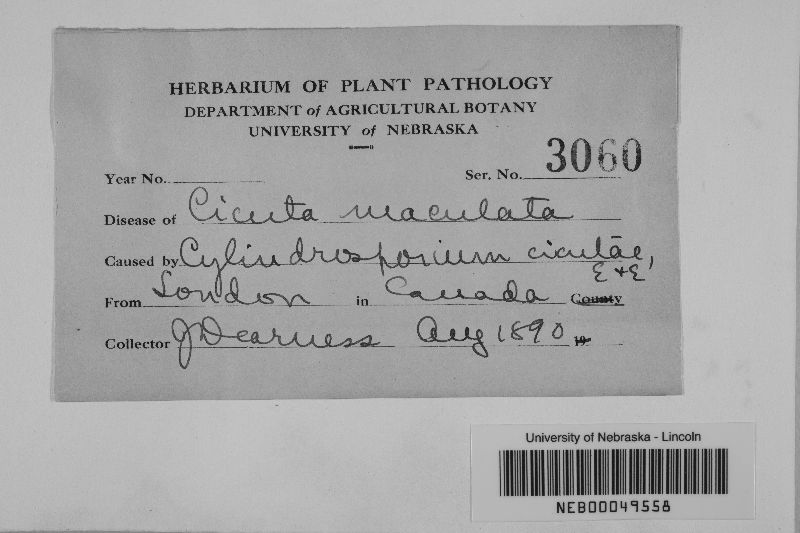 HERBARIUM OF PLANT PATHOLOGY
DEPARTMENT of AGRICULTURAL BOTANY
UNIVERSITY of NEBRASKA
Year No. Ser. No. 3060
Disease of Cicuta maculata
Caused by Cylindrosporium cicutae,
E & E
From London in Canada County
Collector J Dearness Aug 1890 19
University of Nebraska - Lincoln
NEB00049558